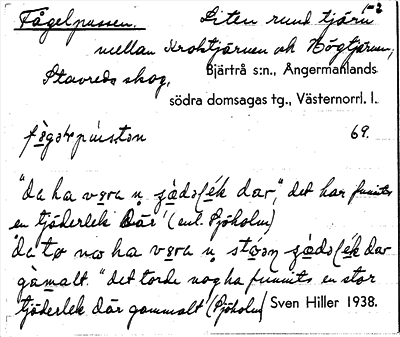 Fågelpussen. Liten rund tjärn 1-2
mellan Kroktjärnen och Högtjärnen,
Stavreds skog, Bjärtrå s:n., Ångermanlands
södra domsagas tg., Västernorrl. l.
69.
"da ha vǝra n dar," det har funnits
en tjäderlek där' (enl. Sjöholm)
"da to no ha vǝra n dar
gàmalt. "det torde nog ha funnits en stor
tjäderlek där gammalt' (Sjöholm) Sven Hiller 1938.